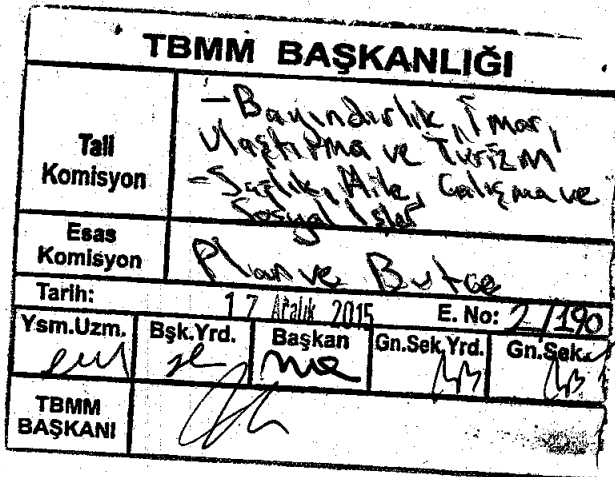 TBMM BAŞKANLIĞI
Tali
Komisyon
- Bayındırlık, İmar,
Ulaştırma ve Turizm
- Sağlık, Aile, Çalışma ve
Sosyal İşler
Esas
Komisyon
Plan ve Bütçe
Tarih:
17 Aralık 2015
E. No: 2/190
Ysm.Uzm.
Bşk.Yrd.
Başkan
Gn.Sek.Yrd.
Gn.Sek.
TBMM
BAŞKANI